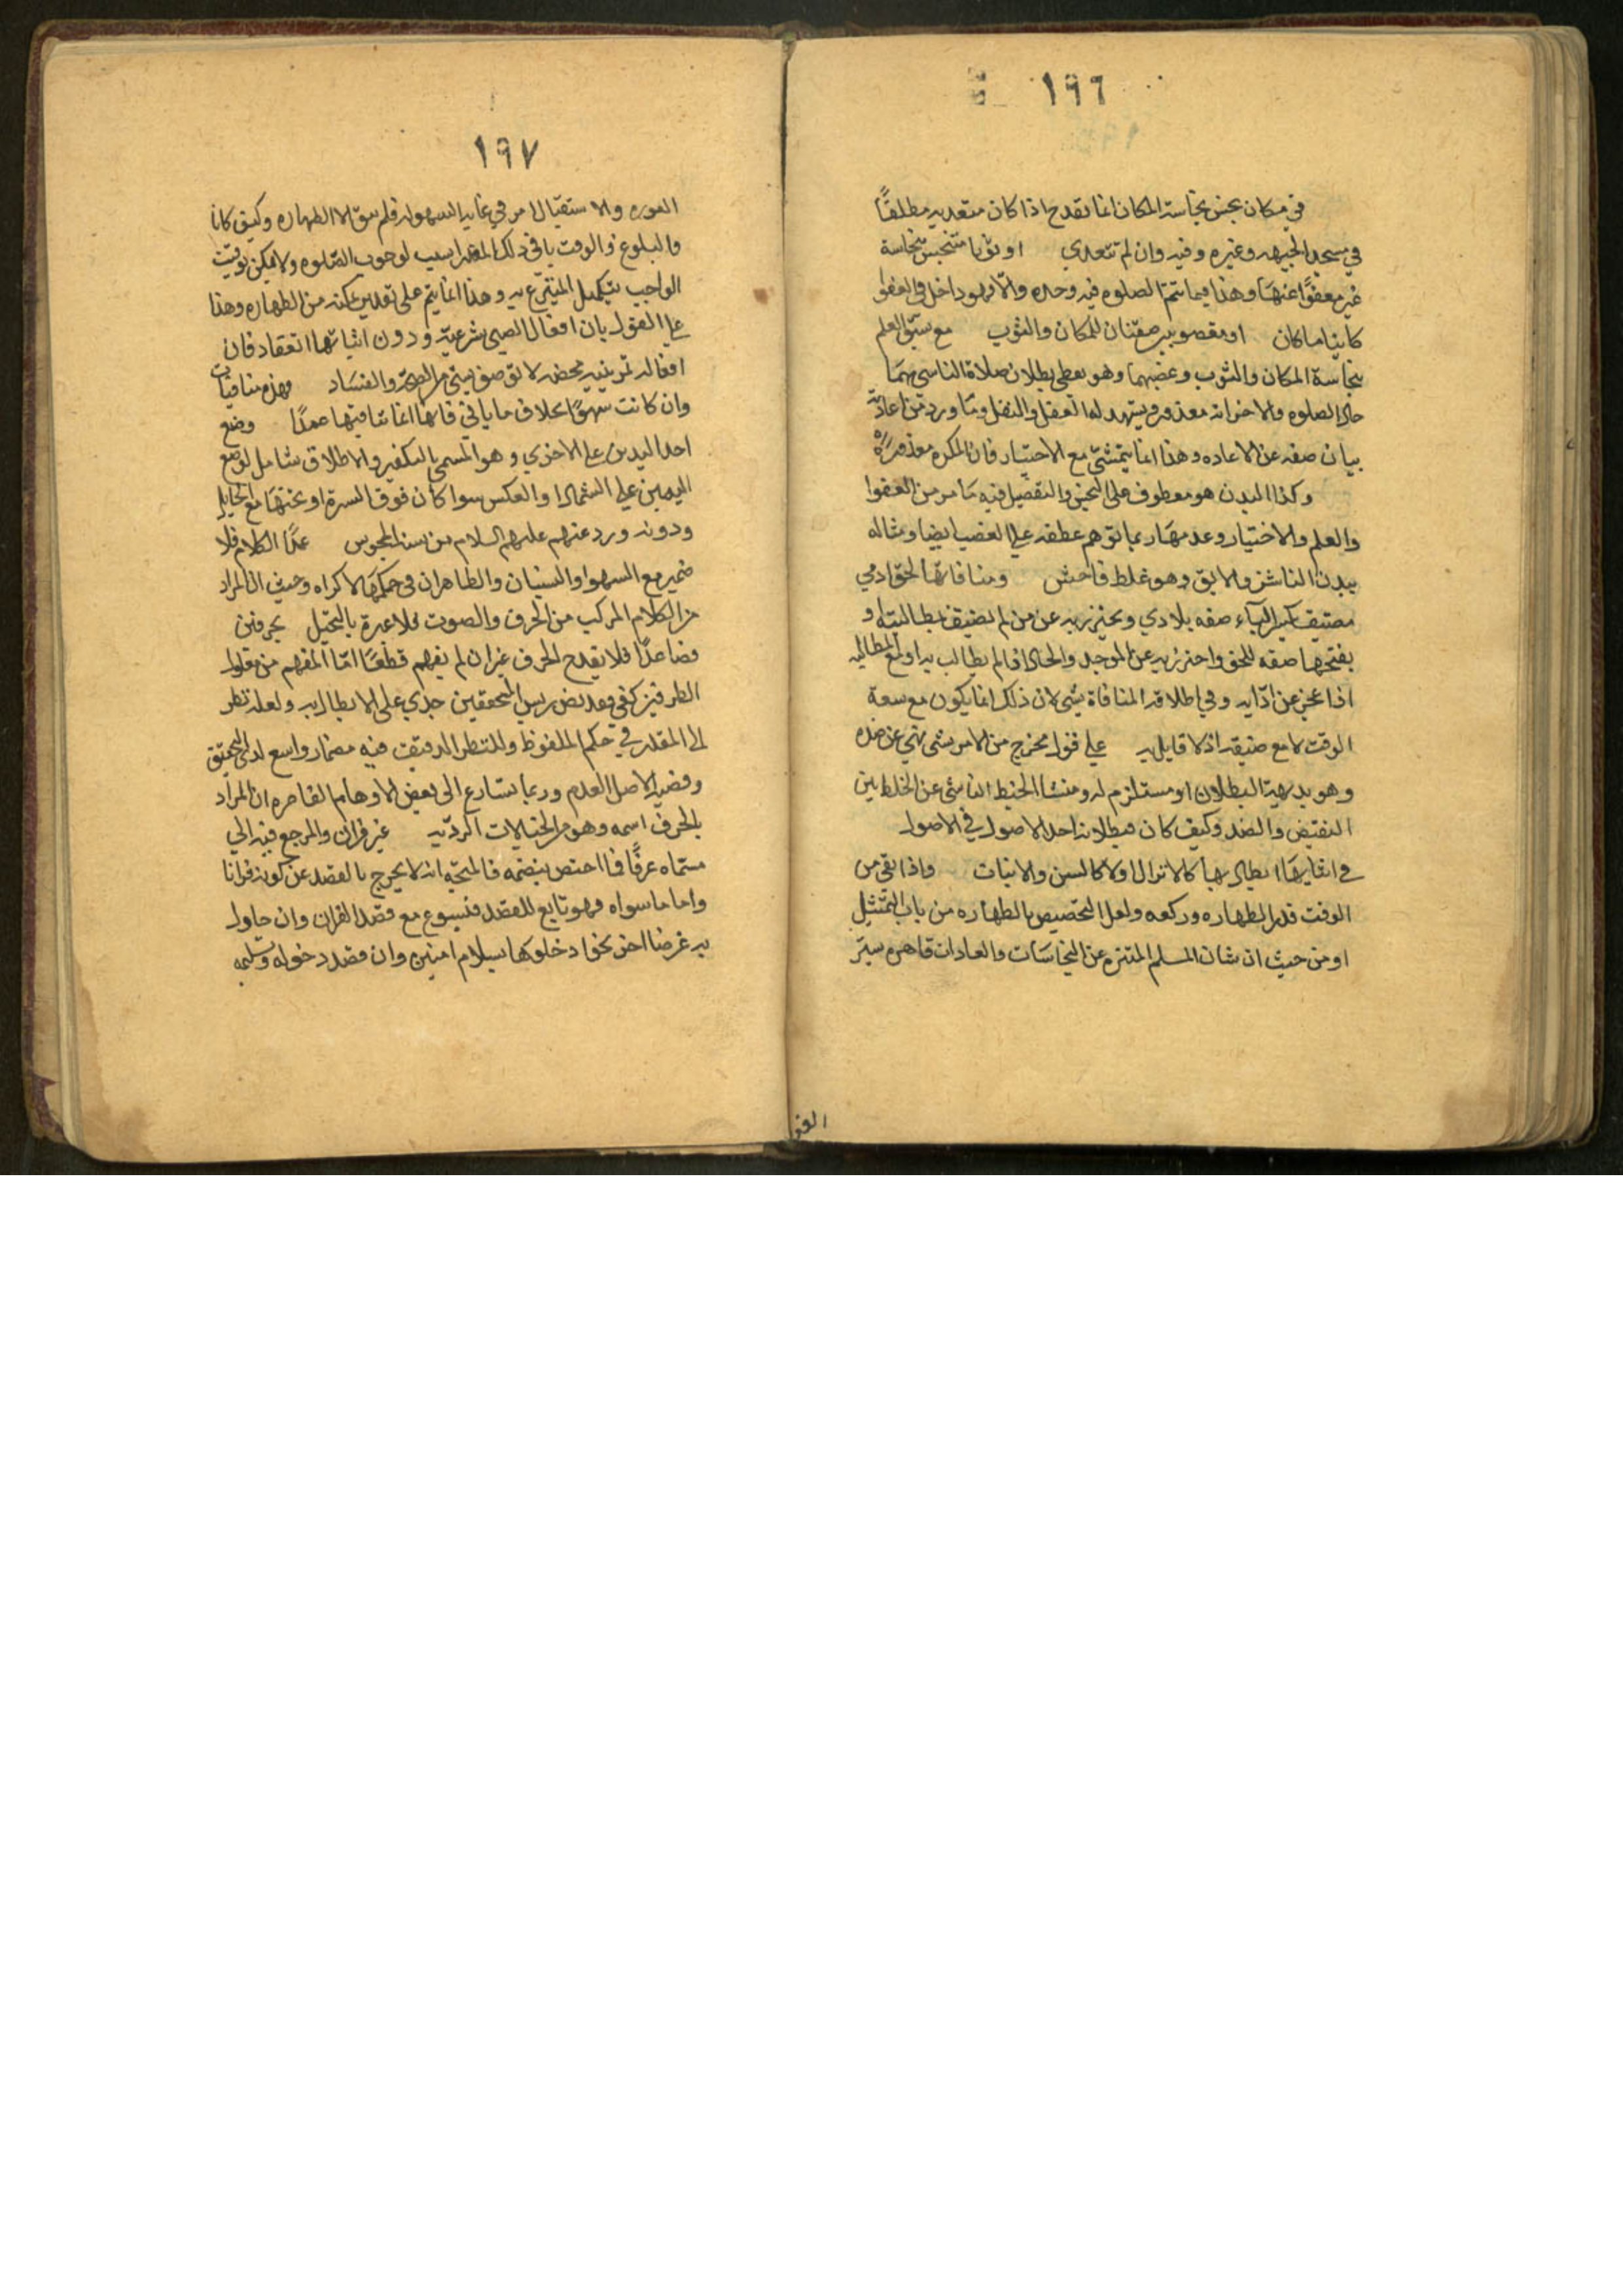 ١٩٦
في مكان نجس نجاسة المكان انما تقدح اذا كان متعديه مطلقًا
في مسجد الجبهه وغيره وفيه وان لم تتعدي او ثوبا متنجس نجاسة
غير معفوًّا عنها وهذا فيما تتم الصلوه فيه وحده والّا فهو داخل في العفو
كاينا ما كان او مغصوبين صفتان للمكان والثوب مع سبق العلم
بنجاسة المكان والثوب وغصبهما وهو يعطي بطلان صلاة الناسي لهما
حال الصلوه والاخر انه معذور ويشهد له العقل والنقل وما ورد من اعادته
بيان صفه عن الاعاده وهذا انما يتمشي مع الاختيار فان المكره معذور
وكذا البدن هو معطوف على النجس والتفصيل فيه ما مر من العفوا
والعلم والاختيار وعدمها ربما توهم عطفه علي الغصب ايضا ومثاله
ببدن الناشز والابق وهو غلط فاحش ومنافاتها لحق ادمي
مضيق بكسر الياء صفه بلادي ويحترز به عن من لم يضيق مطالبته او
بفتحها صفه للحق واحترز به عن الموجل والحال اذا لم يطالب به او مع المطالبه
اذا عجز عن ادّايه وفي اطلاقه المنافاة شي لان ذلك انما يكون مع سعة
الوقت لا مع ضيقه اذ لا قايل به علي قول مخرج من الامر بشي نهي عن ضده
وهو بديهية البطلان او مستلزم له ومنشا الخبط الناشي عن الخلط بين
النقيض والضد وكيف كان فبطلانه احد الاصول في الاصول
في اتقايها ابطال بها كالانزال اولا كالسن والانبات واذا بقي من
الوقت قدر الطهاره وركعه ولعل التخصيص بالطهاره من باب التمثيل
او من حيث ان شان المسلم المتنزه عن النجاسات والعادات قاهره ستر
العو
١٩٧
العوره والاستقبال امر في غاية السهوله فلم يبق الا الطهاره وكيف كان
فالبلوغ والوقت باقي ذلك المقدار سبب لوجوب الصلوه ولا يمكن توقيت
الواجب بتكميل المتبرع به وهذا انما يتم على تقدير تمكنه من الطهاره وهذا
علي القول بان افعال الصبي شرعيّه ودون اثباتها انعقاد فان
افعاله تمرينيه محضه لا توصف بشي من الصحّة والفساد فهذه منافيات
وان كانت سهوًا بخلاف ما ياتي فانها انما تنافيها عمدًا وضع
احد اليدين علي الاخري وهو المسمي بالتكفير والاطلاق شامل لوضع
اليمين علي الشمال او العكس سوا كان فوق السرة او تحتها مع الحايل
ودونه ورد عنهم عليهم السلام من سنه المجوس عمدًا الكلام فلا
ضمير مع السهو او النسيان والظاهر ان في حكمها الاكراه وحيث ان المراد
من الكلام المركب من الحرف والصوت فلا عبرة بالتخيل بحرفين
فصاعدًا فلا يقدح الحرف غير ان لم يفهم قطعًا امّا المفهم من مقول
الطرفين كفي فعد بعض رييس المحققين جدي على الابطال به ولعله نظر
الي المقدر في حكم الملفوظ وللنظر الدقيق فيه مضمار واسع لدى التحقيق
وقضيه الاصل العدم وربما تسارع الى بعض الاوهام القاصره ان المراد
بالحرف اسمه وهو من الخيالات الرديّه غير قران والمرجع فيه الي
مسماه عرفًا فما اختص بنضمه فالمتجه انه لا يخرج بالقصد عن كونه قرانا
واما ما سواه فهو تابع للقصد فيسوغ مع قصد القران وان حاول
به غرضا اخر نحو ادخلوها بسلام امنين وان قصد دخوله وسلمه